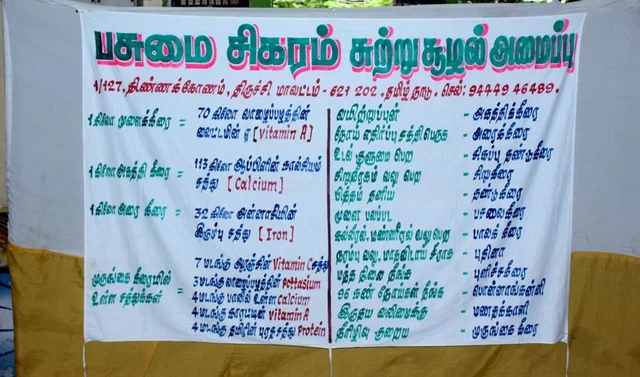 பசுமை சிகரம் சுற்று சூழல் அமைப்பு
1/127, திண்ணக்கோணம், திருச்சி மாவட்டம் - 621 202, தமிழ்நாடு. செல்: 94449 46489.
1 கிலோ முளைக்கீரை = 70 கிலோ வாழைப்பழத்தின்
வைட்டமின் ஏ [Vitamin A]
1 கிலோ அகத்தி கீரை = 113 கிலோ ஆப்பிளின் கால்சியம்
சத்து [Calcium]
1 கிலோ அரை கீரை = 32 கிலோ அன்னாசியின்
இரும்பு சத்து [Iron]
முருங்கை கீரையில்
உள்ள சத்துக்கள் =
7 மடங்கு ஆரஞ்சின் Vitamin C சத்து
3 மடங்கு வாழைப்பழத்தின் Pottasium
4 மடங்கு பாலில் உள்ள Calcium
4 மடங்கு காரட்டின் Vitamin A
4 மடங்கு தயிரின் புரத சத்து Protein
வயிற்றுப்புண் - அகத்திக்கீரை
நோய் எதிர்ப்பு சக்தி பெருக - அரைக்கீரை
உடல் குளுமை பெற - சிகப்பு தண்டுகீரை
சிறுநீரகம் வலு பெற - சிறுகீரை
பித்தம் தணிய - தண்டுகீரை
மூளை பலப்பட - பசலைகீரை
கல்லீரல், மண்ணீரல் வலு பெற - பாலக் கீரை
நரம்பு வலு, மாதவிடாய் சீராக - புதினா
மந்த நிலை நீங்க - புளிச்சகீரை
96 கண் நோய்கள் நீங்க - பொன்னாங்கன்னி
இருதய வலிமைக்கு - மணதக்காளி
நீரிழிவு குறைய - முருங்கை கீரை